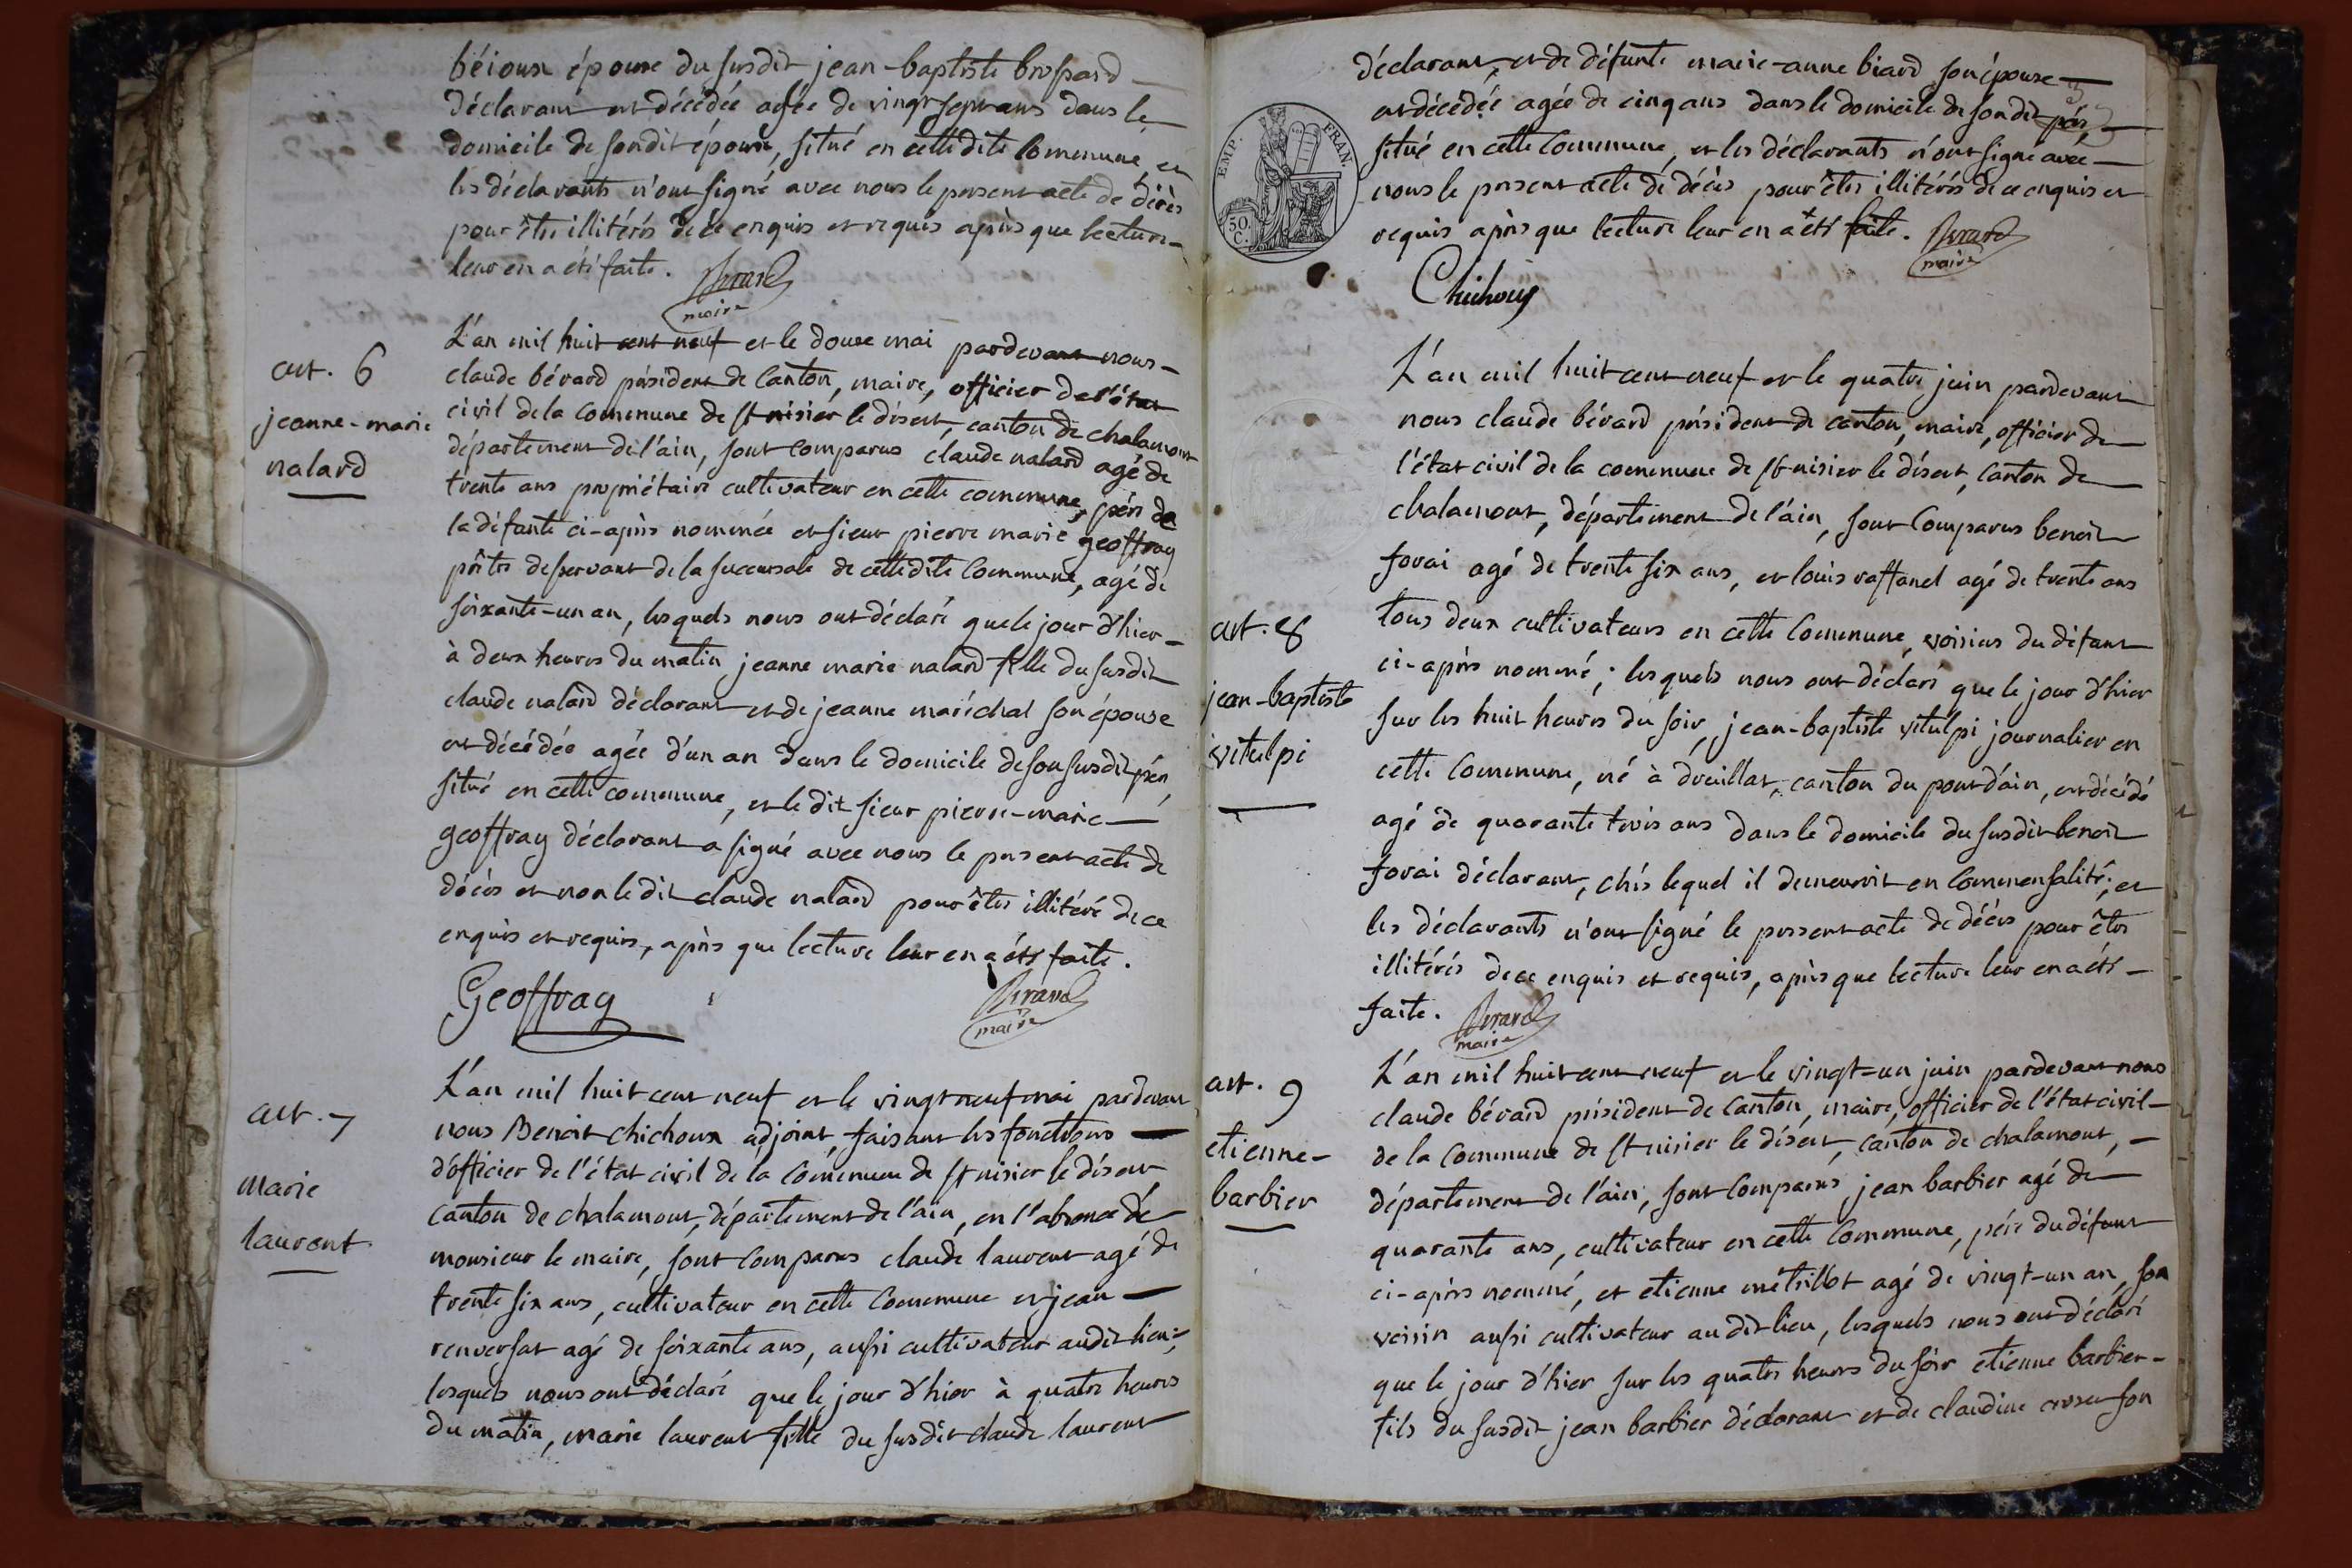 béioux épouse du susdit jean-baptiste brossard
déclarant est décédée agée de vingt sept ans dans le
domicile de sondit époux, situé en cette dite Commune, et
les déclarants n'ont signé avec nous le present acte de décès
pour être illitérés de ce enquis et requis après que lecture
leur en a été faite. Bérard
maire
art. 6
jeanne-marie
nalard
L'an mil huit cent neuf et le douze mai pardevant nous
claude bérard président de Canton, maire, officier de l'état
civil de la Commune de st nisier le désert, canton de chalamont
département de l'ain, sont comparus claude nalard agé de
trente ans propriétaire cultivateur en cette commune, père de
la défunte ci-après nommée et sieur pierre marie geoffray
prêtre desservant de la succursale de cette dite Commune, agé de
soixante-un an, lesquels nous ont déclaré que le jour d'hier
à deux heures du matin jeanne marie nalard fille du susdit
claude nalard déclarant et de jeanne maréchal son épouse
est décédée agée d'un an dans le domicile de son susdit père,
situé en cette commune, et le dit sieur pierre-marie
geoffray déclarant a signé avec nous le present acte de
décès et non le dit claude nalard pour être illitéré de ce
enquis et requis, après que lecture leur en a été faite.
Geoffray Bérard
maire
art. 7
marie
laurent
L'an mil huit cent neuf et le vingt neuf mai pardevant
nous Benoit chichoux adjoint, faisant les fonctions
d'officier de l'état civil de la Commune de st nisier le désert
canton de chalamont, département de l'ain, en l'absence de
monsieur le maire, sont comparus claude laurent agé de
trente six ans, cultivateur en cette Commune et jean
renversat agé de soixante ans, aussi cultivateur audit lieu;
lesquels nous ont déclaré que le jour d'hier à quatre heures
du matin, marie laurent fille du susdit claude laurent
déclarant, et de défunte marie-anne biard son épouse
est décédée agée de cinq ans dans le domicile de son dit père,
situé en cette Commune, et les déclarants n'ont signé avec
nous le present acte de décès pour être illitérés de ce enquis et
requis après que lecture leur en a été faite. Bérard
maire
Chichoux
EMP. FRAN.
50.
C.
L'an mil huit cent neuf et le quatre juin pardevant
nous claude bérard président de canton, maire, officier de
l'état civil de la commune de st nisier le désert, Canton de
chalamont, département de l'ain, sont Comparus benoit
forai agé de trente six ans, et louis raffanel agé de trente ans
art. 8
jean-baptiste
vitulpi
tous deux cultivateurs en cette Commune, voisins du défunt
ci-après nommé; lesquels nous ont déclaré que le jour d'hier
sur les huit heures du soir, jean-baptiste vitulpi journalier en
cette Commune, né à druillat, canton du pont d'ain, est décédé
agé de quarante trois ans dans le domicile du susdit benoit
forai déclarant, chés lequel il demeuroit en Commensalité; et
les déclarants n'ont signé le present acte de décès pour être
illitérés de ce enquis et requis, après que lecture leur en a été
faite. Bérard
maire
art. 9
etienne-
barbier
L'an mil huit cent neuf et le vingt-un juin pardevant nous
claude bérard président de Canton, maire, officier de l'état civil
de la Commune de st nisier le désert, canton de chalamont,
département de l'ain, sont Comparus jean barbier agé de
quarante ans, cultivateur en cette Commune, père du défunt
ci-après nommé, et etienne métrillot agé de vingt-un an, son
voisin aussi cultivateur au dit lieu, lesquels nous ont déclaré
que le jour d'hier sur les quatre heures du soir etienne barbier
fils du susdit jean barbier déclarant et de claudine son